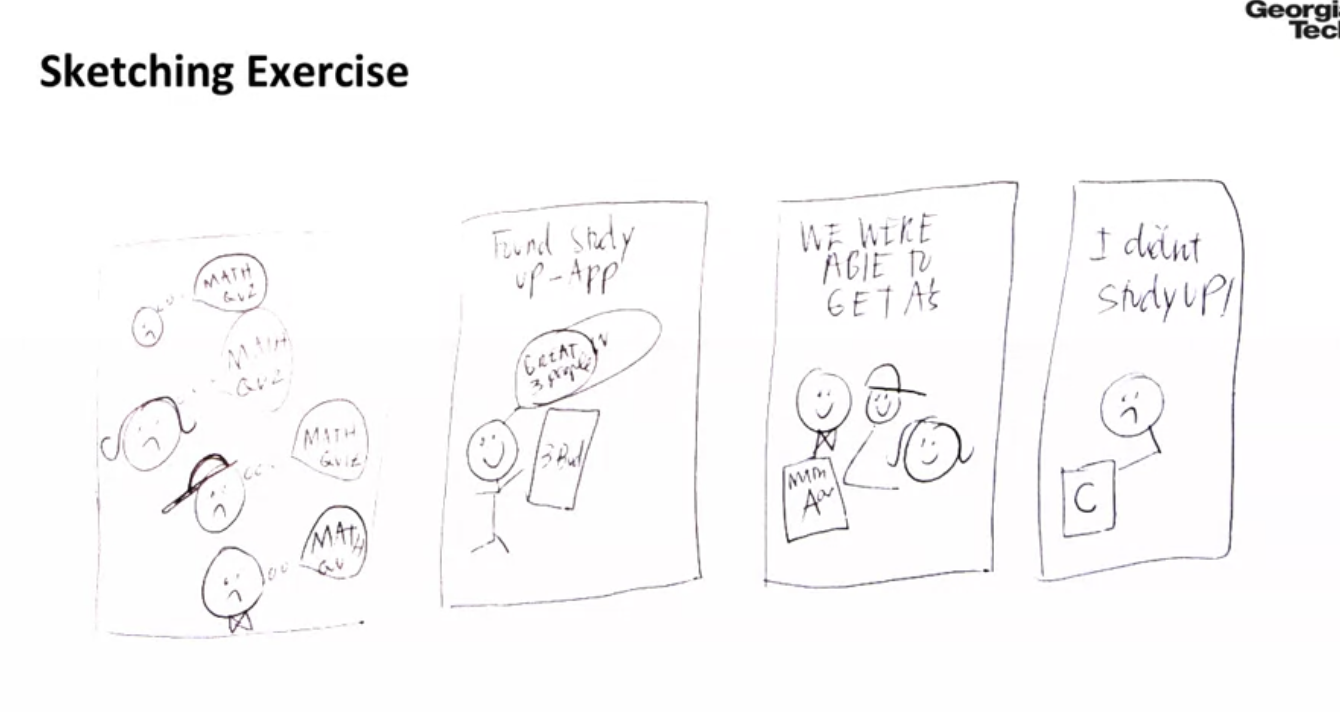 Georgia
Tech
Sketching Exercise
MATH
QUZ
MATH
QUZ
MATH
QUIZ
MATH
QU
Found Study
UP-APP
GREAT
3 people
3 Bud
WE WERE
ABlE TO
GET A's
MATH
A
I didnt
Study UP!
C